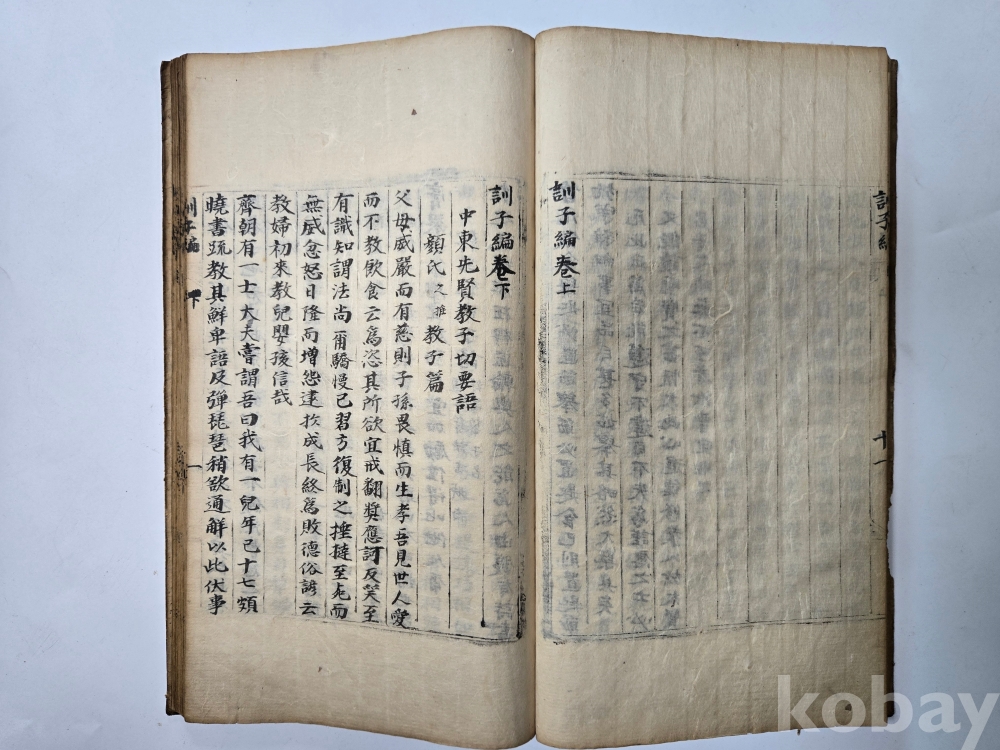 訓子編
十一
訓子編卷上
訓子編卷下
中東先賢教子切要語
顏氏之推教子篇
父母威嚴而有慈則子孫畏慎而生孝吾見世人愛
而不教飲食云爲恣其所欲宜戒翻獎應訶反笑至
有識知謂法尚爾驕慢已習方復制之捶撻至死而
無威忿怒日隆而增怨逮於成長終爲敗德俗諺云
教婦初來教兒嬰孩信哉
齊朝有一士大夫嘗謂吾曰我有一兒年已十七頗
曉書疏教其鮮卑語及彈琵琶稍欲通解以此伏事
訓子編
下
一
kobay